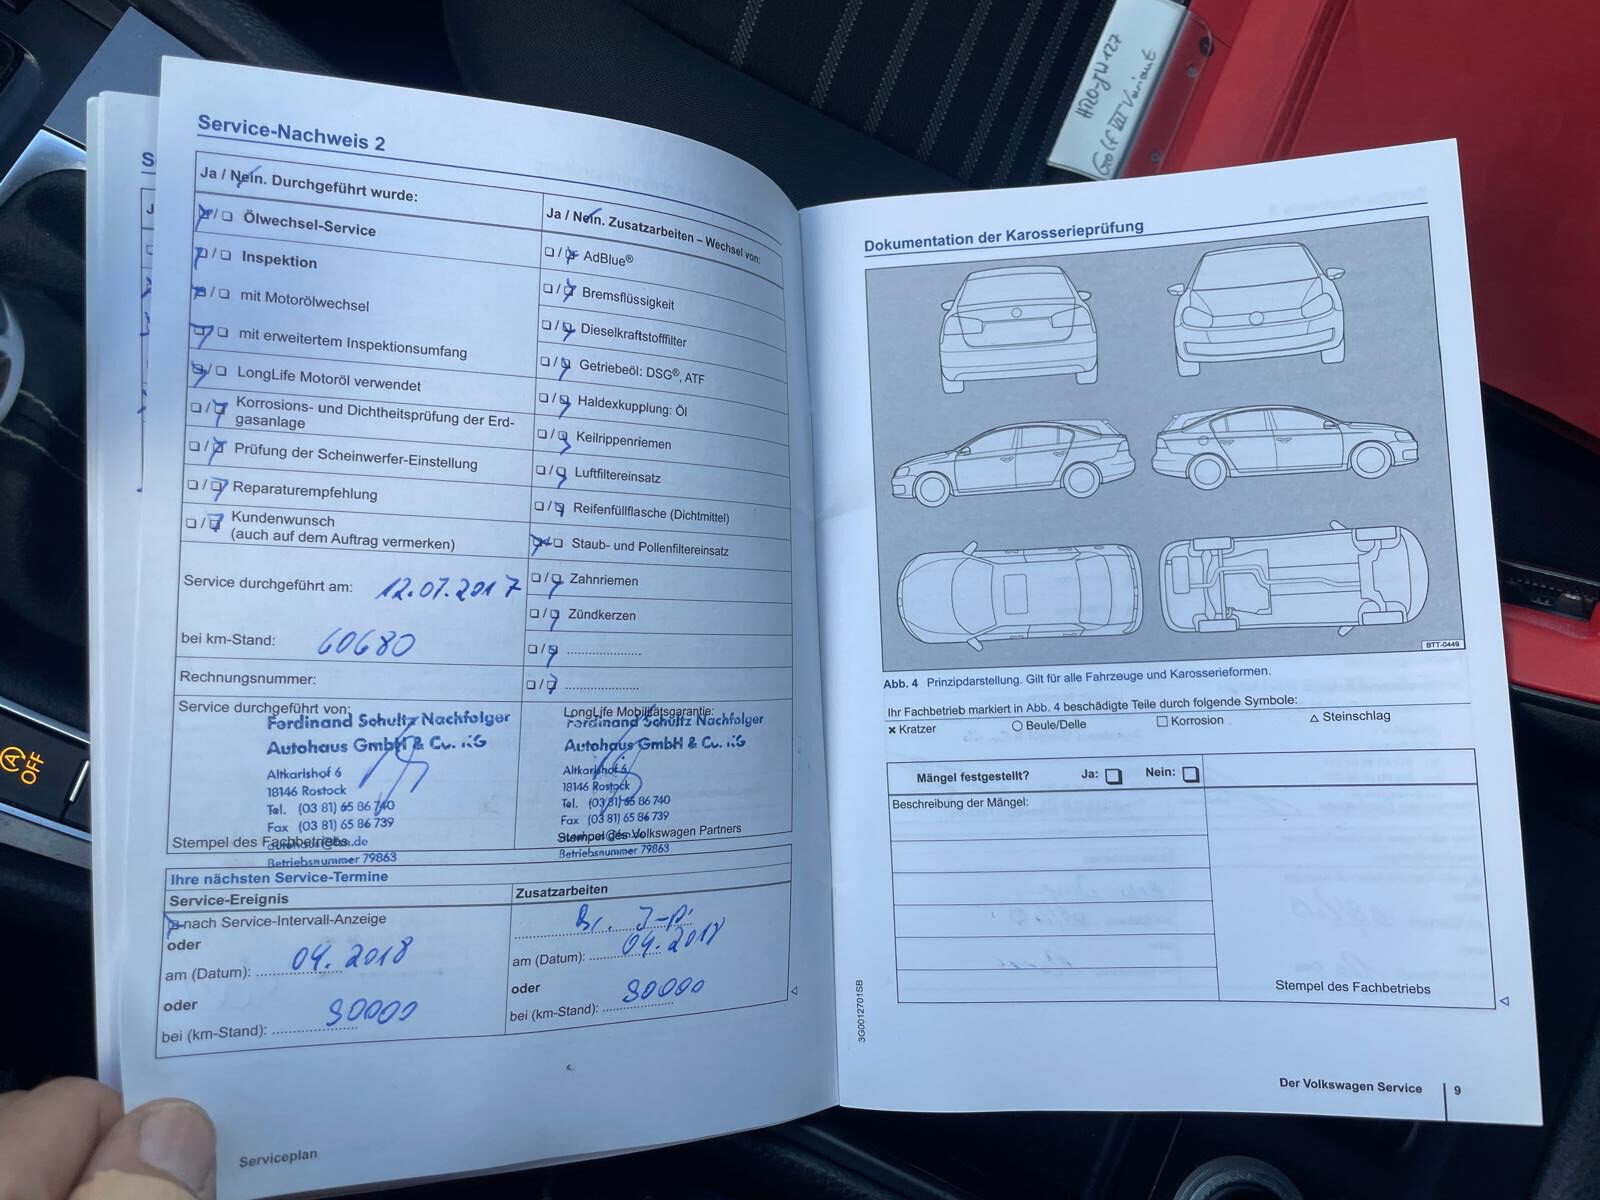 HRO-JW127
Golf VII Variant
Service-Nachweis 2
Ja / Nein. Durchgeführt wurde:
Ölwechsel-Service
Inspektion
mit Motorölwechsel
mit erweitertem Inspektionsumfang
LongLife Motoröl verwendet
Korrosions- und Dichtheitsprüfung der Erd-
gasanlage
Prüfung der Scheinwerfer-Einstellung
Reparaturempfehlung
Kundenwunsch
(auch auf dem Auftrag vermerken)
Service durchgeführt am: 12.07.2017
bei km-Stand: 60680
Rechnungsnummer:
Ja / Nein. Zusatzarbeiten – Wechsel von:
AdBlue®
Bremsflüssigkeit
Dieselkraftstofffilter
Getriebeöl: DSG®, ATF
Haldexkupplung: Öl
Keilrippenriemen
Luftfiltereinsatz
Reifenfüllflasche (Dichtmittel)
Staub- und Pollenfiltereinsatz
Zahnriemen
Zündkerzen
Service durchgeführt von:
Ferdinand Schultz Nachfolger
Autohaus GmbH & Co. KG
Altkarlshof 6
18146 Rostock
Tel. (03 81) 65 86 740
Fax (03 81) 65 86 739
Stempel des Fachbetriebs
Betriebsnummer 79863
LongLife Mobilitätsgarantie:
Ferdinand Schultz Nachfolger
Autohaus GmbH & Co. KG
Altkarlshof 6
18146 Rostock
Tel. (03 81) 65 86 740
Fax (03 81) 65 86 739
Stempel des Volkswagen Partners
Betriebsnummer 79863
Ihre nächsten Service-Termine
Service-Ereignis
nach Service-Intervall-Anzeige
oder
am (Datum): 04.2018
oder
bei (km-Stand): 90000
Zusatzarbeiten
am (Datum): 04.2018
oder
bei (km-Stand): 90000
Serviceplan
Dokumentation der Karosserieprüfung
BTT-0449
Abb. 4 Prinzipdarstellung. Gilt für alle Fahrzeuge und Karosserieformen.
Ihr Fachbetrieb markiert in Abb. 4 beschädigte Teile durch folgende Symbole:
Kratzer Beule/Delle Korrosion Steinschlag
Mängel festgestellt? Ja: Nein:
Beschreibung der Mängel:
Stempel des Fachbetriebs
3G0012701SB
Der Volkswagen Service 9
A OFF